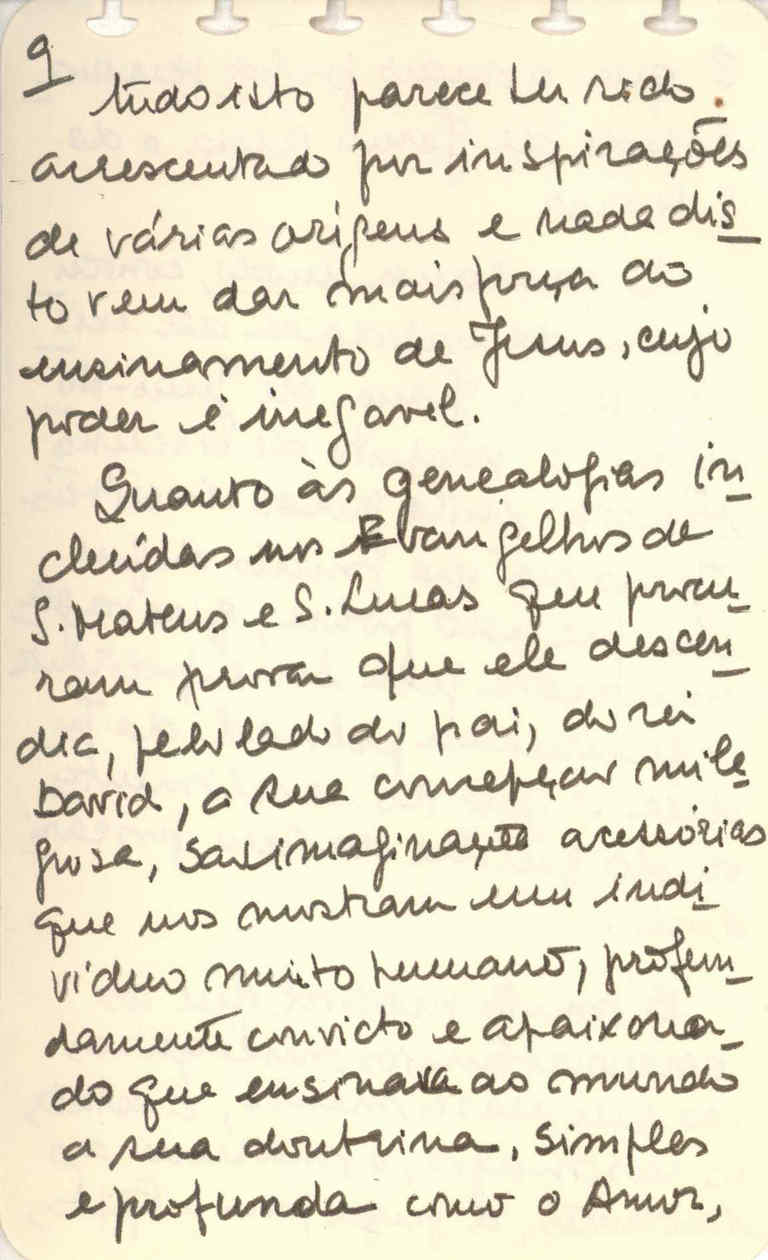 9
tudo isto parece ter sido
acrescentado por inspirações
de várias origens e nada dis-
to vem dar mais força ao
ensinamento de Jesus, cujo
poder é inegavel.
Quanto às genealogias in-
cluídas nos Evangelhos de
S. Mateus e S. Lucas que procu-
ram provar que ele descen-
dia, pelo lado do pai, do rei
David, a sua concepção mila-
grosa, são imaginações acessórias
que nos mostram um indi-
víduo muito humano, profun-
damente convicto e apaixona-
do que ensinava ao mundo
a sua doutrina, simples
e profunda como o Amor,